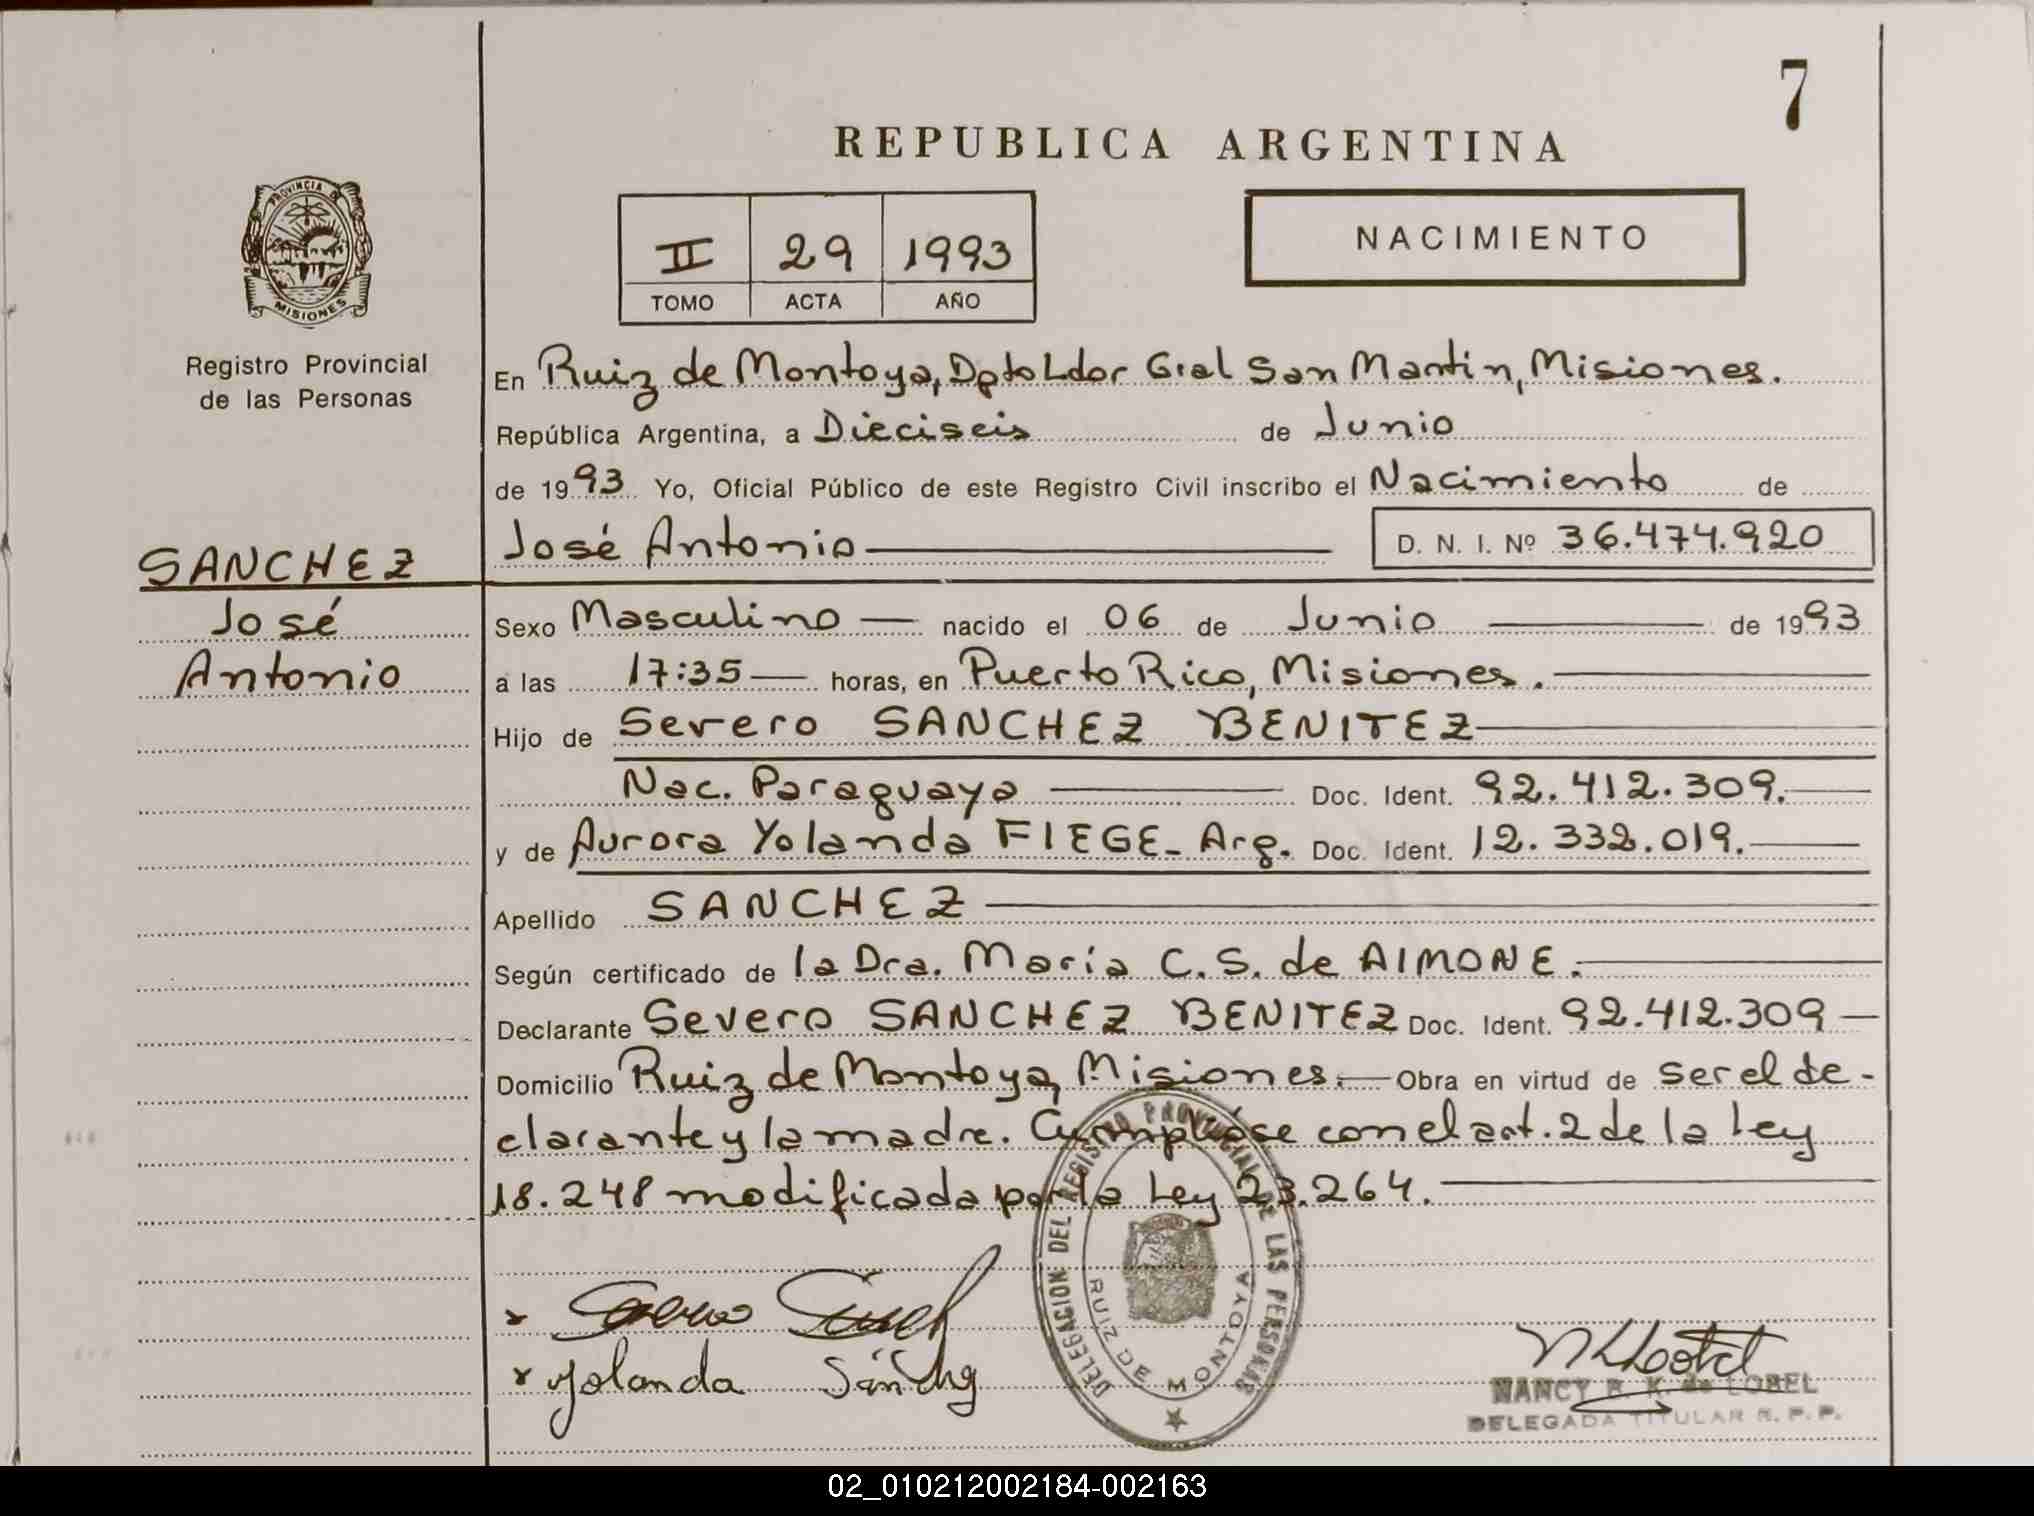 7
REPUBLICA ARGENTINA
PROVINCIA DE
MISIONES
Registro Provincial
de las Personas
II 29 1993
TOMO ACTA AÑO
NACIMIENTO
En Ruiz de Montoya, Dpto Ldor Gral San Martín, Misiones.
República Argentina, a Dieciseis de Junio
de 1993 Yo, Oficial Público de este Registro Civil inscribo el Nacimiento de
José Antonio D. N. I. Nº 36.474.920
SANCHEZ
José
Antonio
Sexo Masculino nacido el 06 de Junio de 1993
a las 17:35 horas, en Puerto Rico, Misiones.
Hijo de Severo SANCHEZ BENITEZ
Nac. Paraguaya Doc. Ident. 92.412.309.
y de Aurora Yolanda FIEGE- Arg. Doc. Ident. 12.332.019.
Apellido SANCHEZ
Según certificado de la Dra. María C. S. de AIMONE.
Declarante Severo SANCHEZ BENITEZ Doc. Ident. 92.412.309
Domicilio Ruiz de Montoya, Misiones. Obra en virtud de ser el de-
clarante y la madre. Cumplióse con el art. 2 de la Ley
18.248 modificada por la Ley 23.264.
DELEGACION DEL REGISTRO PROVINCIAL DE LAS PERSONAS
RUIZ DE MONTOYA
x Severo
x Yolanda Sánchez
NANCY R. K. de LOBEL
DELEGADA TITULAR R. P. P.
02_010212002184-002163